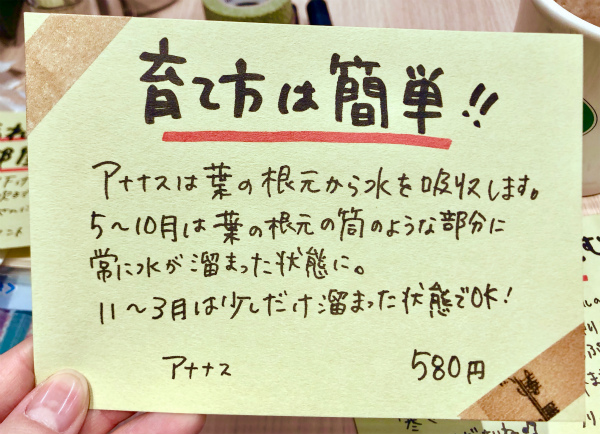 育て方は簡単!!
アナナスは葉の根元から水を吸収します。
5～10月は葉の根元の筒のような部分に
常に水が溜まった状態に。
11～3月は少しだけ溜まった状態でOK!
アナナス 580円